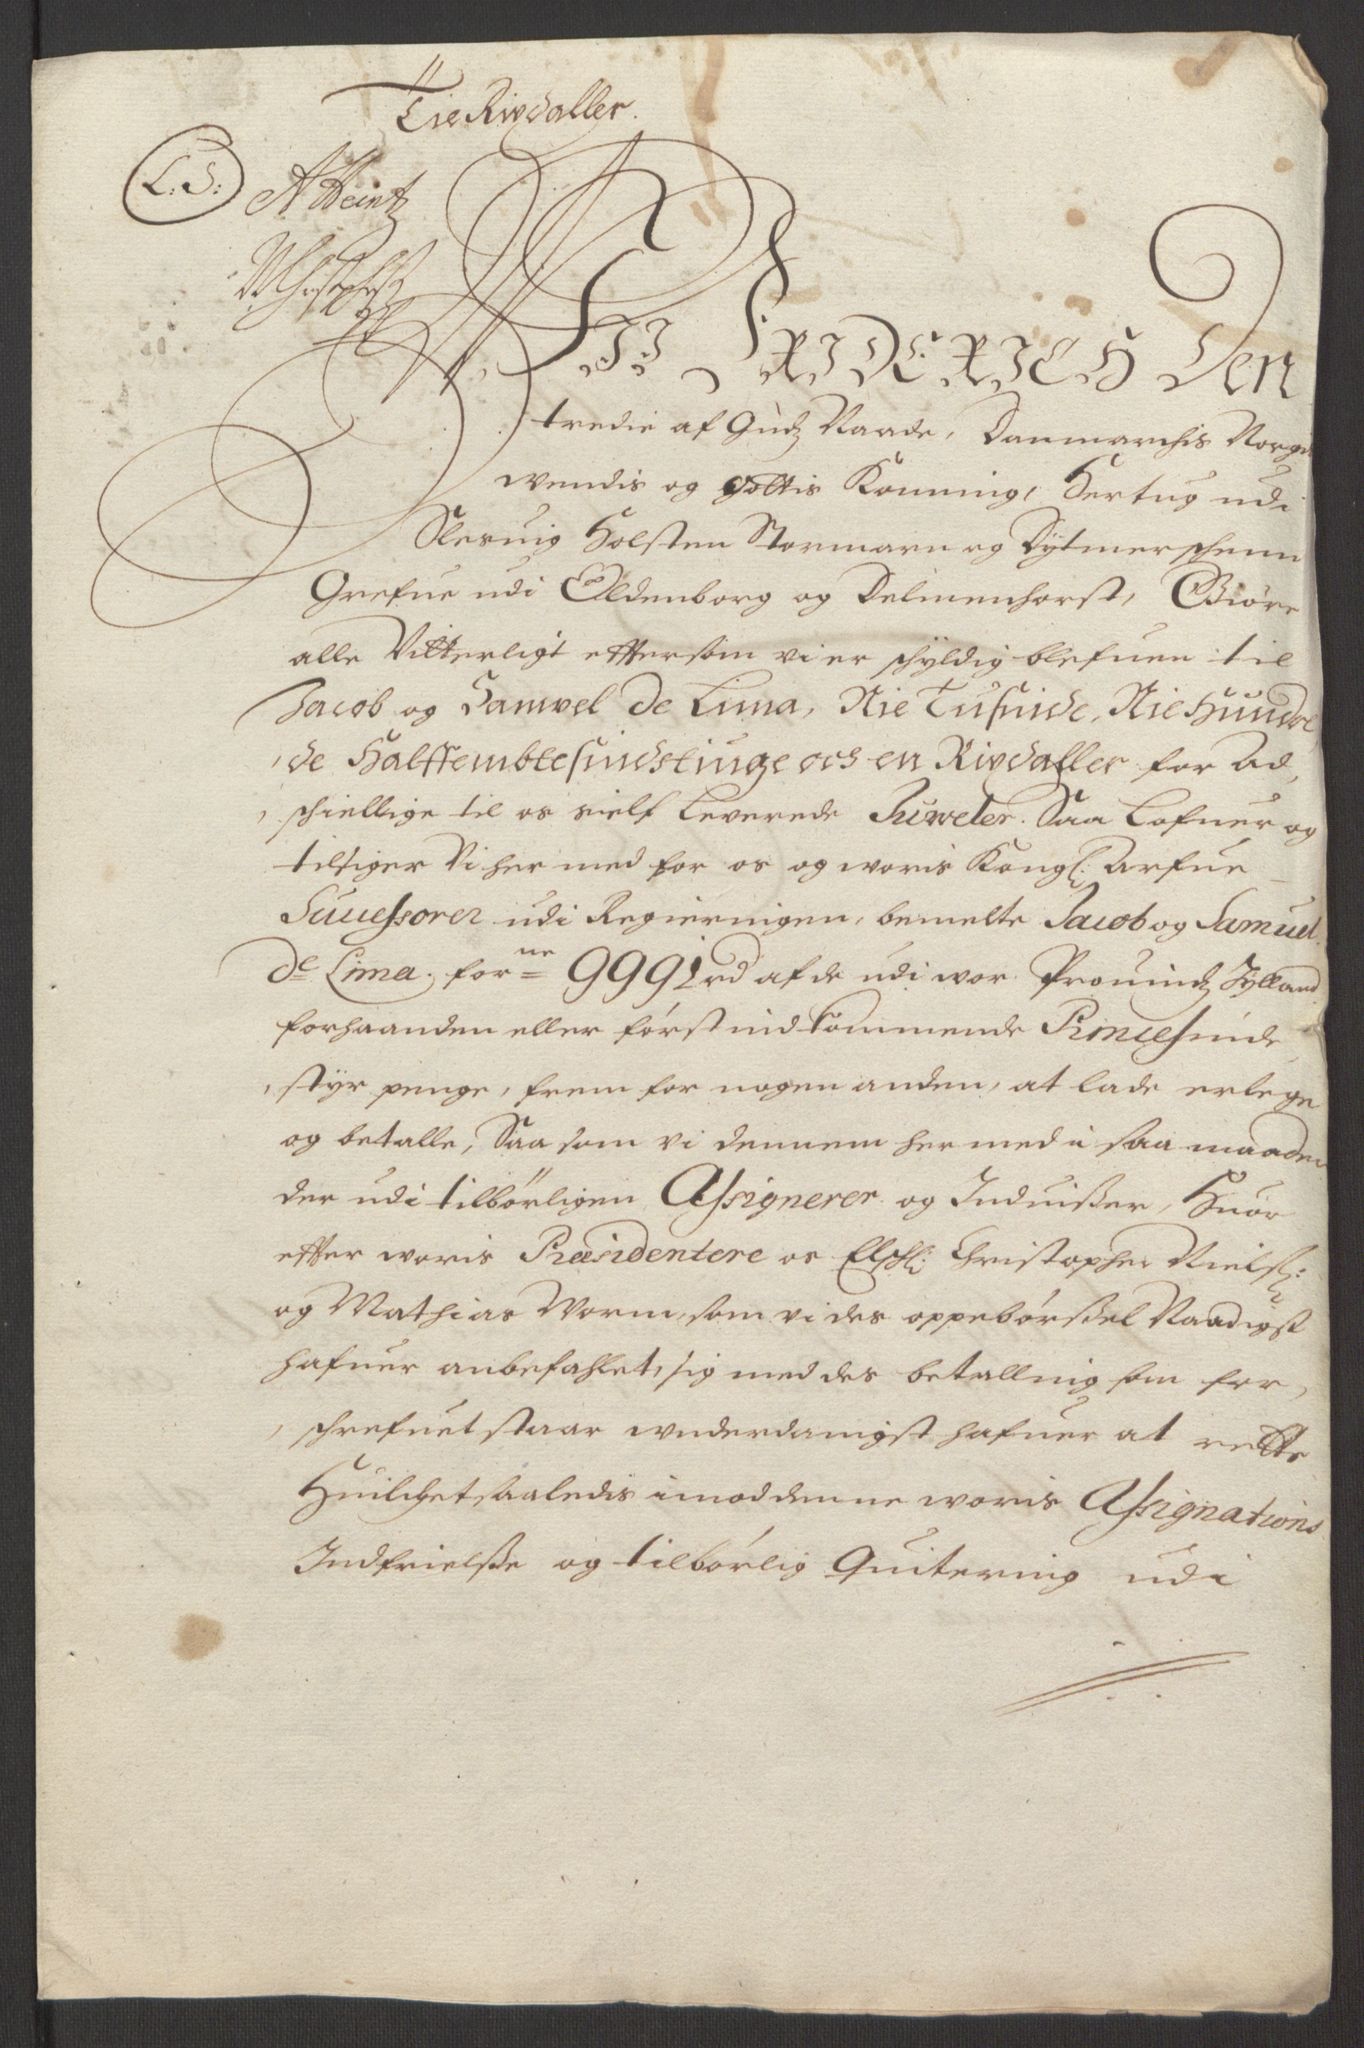 Tie Rixdaller.
L: S: A Heintz
Vii FRIDERICH Den
tredie af Gudz Naade, Danmarchis Norgis
wendis og gottis Konning, Hertug udi
Slesuig Holsten Stormarn og Dytmerschenn
Grefue udi Oldenborg og Delmenhorst, Giøre
alle Vitterligt effersom vi er schyldig blefuen til
Jacob og Samvel De Lima, Nie Tusinde, Nie Hundre
de Halffembtesindstiuge och en Rixdaller for ad,
schiellige til os sielf Leverede Juweler. Saa Lofuer og
tilsiger Vi her med for os og woris Kongl: Arfue
Successorer udi Regieringen, bemelte Jacob og Samuel
de Lima, forne 9991 rd af de udi wor Prouindz Jylland
forhaanden eller først indkommende Princesinde
styr penge, frem for nogen anden, at lade erlege
og betalle, Saa som vi dennem her med i saa maader
der udi tilbørligen Assignerer og Induisser, Huor
effer woris Præsidentere os Elschl: Christopher Nielss:
og Mathias Worm, som vi des oppebørssel Naadigst
hafuer anbefahlet, sig med des betalling som for,
schrefuet staar wnderdanigst hafuer at rette
Huilchet saaledis imod denne woris Assignations
Indfrielsse og tilbørlig Quitering udi